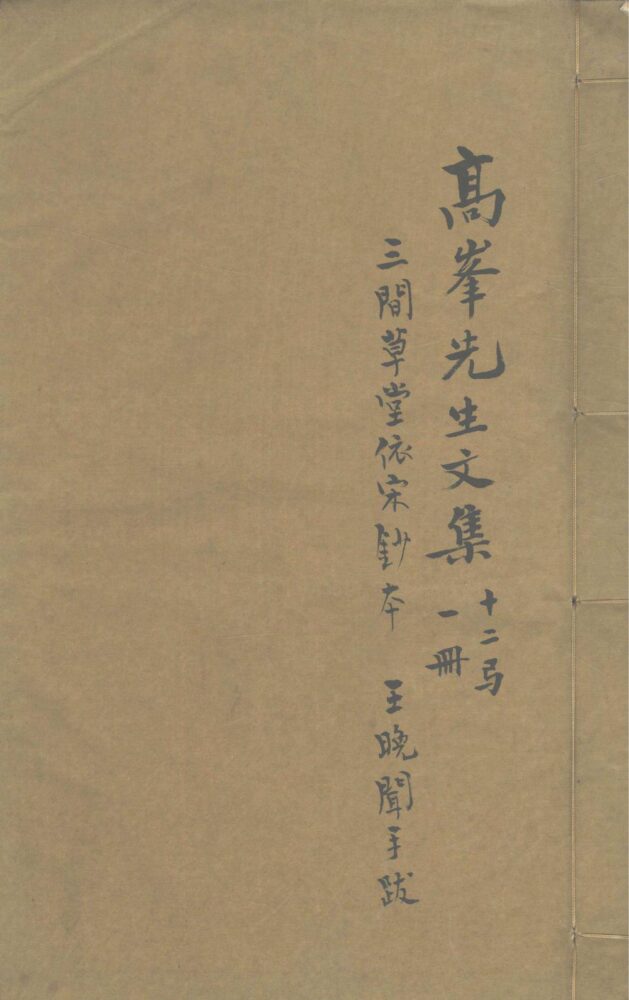 高峯先生文集
十二弓
一冊
三間草堂依宋鈔本 王晚聞手跋